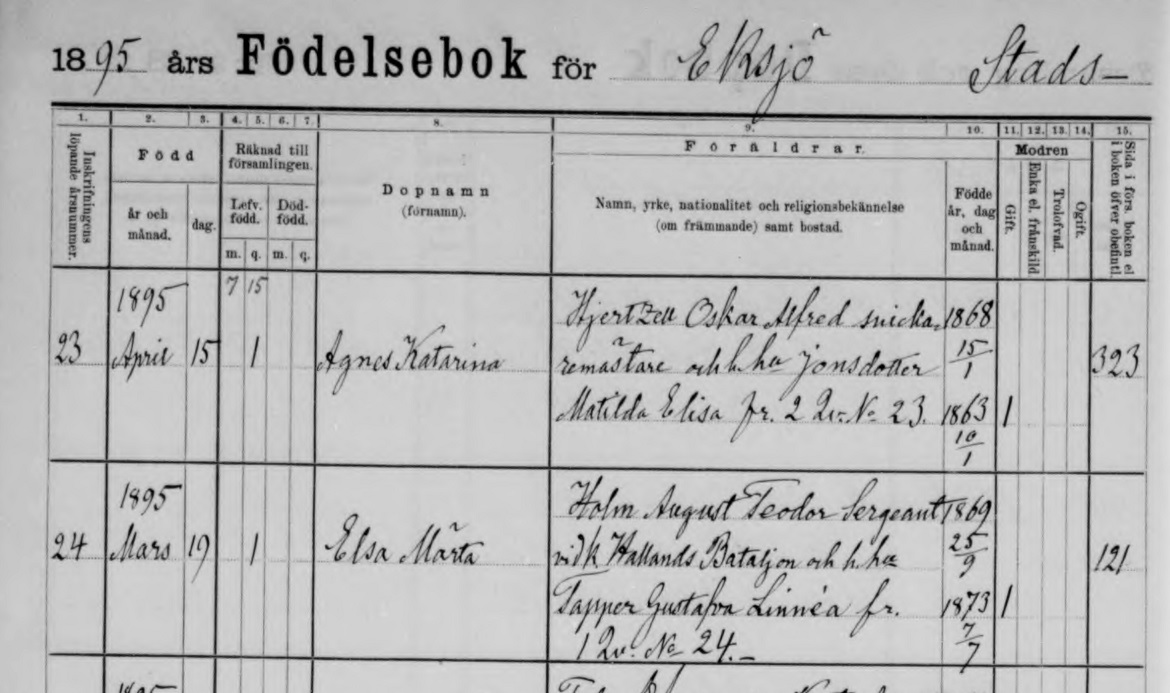 1895 års Födelsebok för Eksjö Stads-
1. 2. 3. 4. 5. 6. 7. 8. 9. 10. 11. 12. 13. 14. 15.
Inskrifningens
löpande årsnummer.
Född
år och
månad.
dag.
Räknad till
församlingen.
Lefv.
född.
Död-
född.
m. q. m. q.
Dopnamn
(förnamn).
Föräldrar.
Namn, yrke, nationalitet och religionsbekännelse
(om främmande) samt bostad.
Födde
år, dag
och
månad.
Modren
Gift.
Enka el. frånskild.
Trolofvad.
Ogift.
Sida i förs. boken el.
i boken öfver obefintl.
7 15
1895
23 April 15 1 Agnes Katarina
Hjertzell Oskar Alfred snicka- 1868
remästare och h. hu Jonsdotter 15/1 323
Matilda Elisa fr. 2 Qv. No 23. 1863 1
10/1
1895
24 Mars 19 1 Elsa Märta
Holm August Teodor Sergeant 1869
vid K. Hallands Bataljon och h. hu 25/9 121
Tapper Gustafva Linnéa fr. 1873 1
1 Qv. No 24.- 7/7
1895